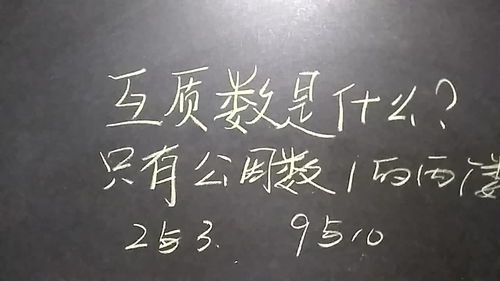 互质数是什么?
只有公因数1的两个数
2与3. 9与10